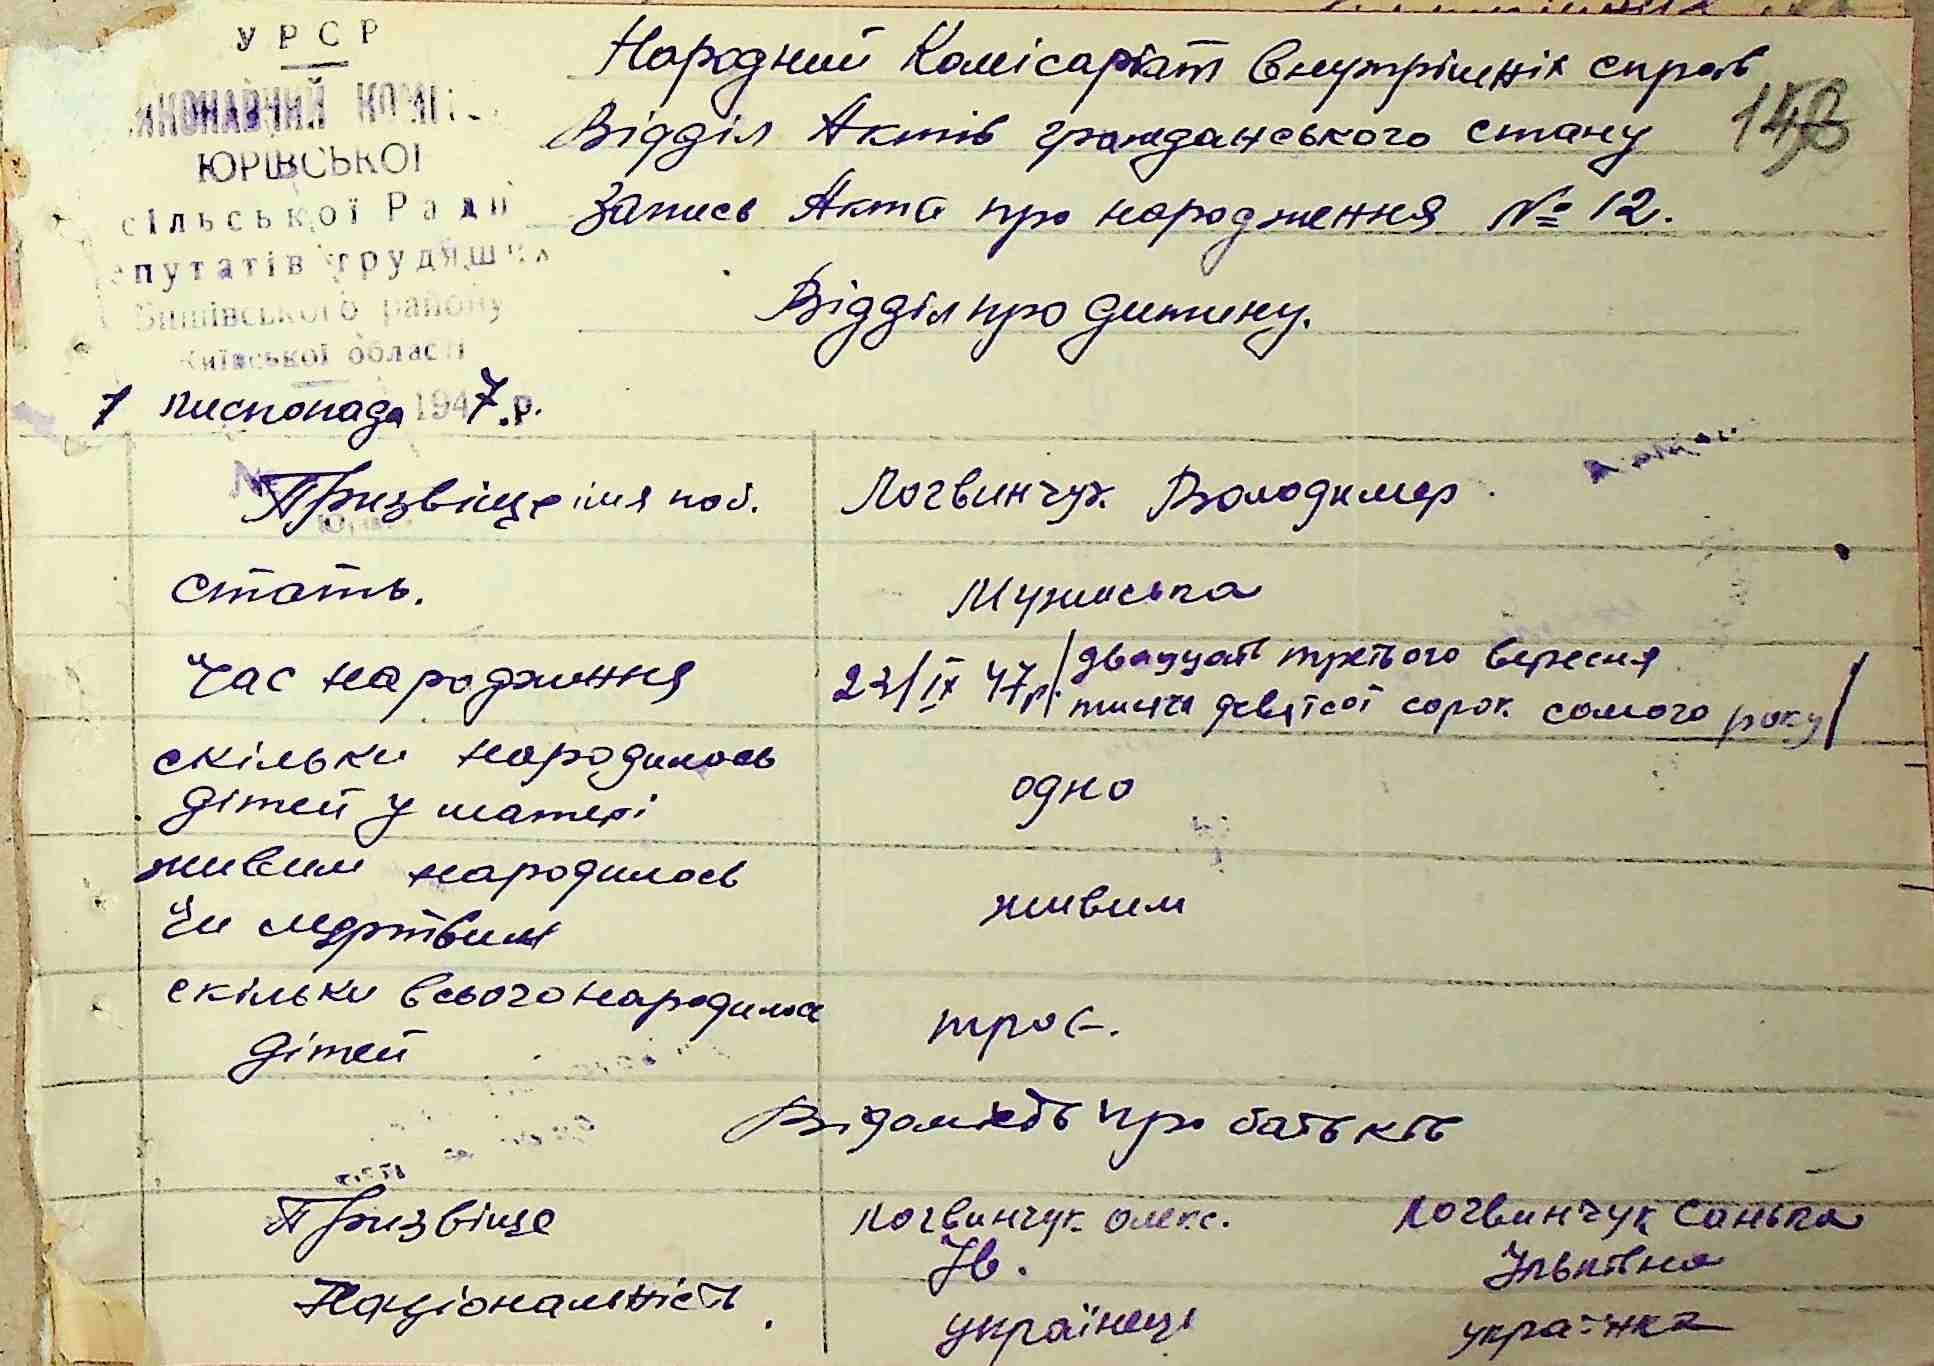 УРСР
ВИКОНАВЧИЙ КОМІ
ЮРІВСЬКОЇ
сільської Ради
депутатів трудящих
району
Київської області
7 листопада 1947.р.
Народний Комісаріат внутрішніх справ
Відділ Актів гражданського стану
Запись Акта про народження № 12.
148
Відділ про дитину.
Призвіще імя поб.
Логвинчук Володимер.
стать.
Мужиська
Час народження
23/IX 47р. /двадцать третього вересня
тисяча девятсот сорок сомого року/
скільки народилось
дітей у матері
одно
живим народилось
Чи мертвим
живим
скільки всього народилось
дітей
троє.
Відомість про батьків
Призвіще
Логвинчук Олекс.
Ів.
Логвинчук Санька
Ільківна
Національність.
українець
українка